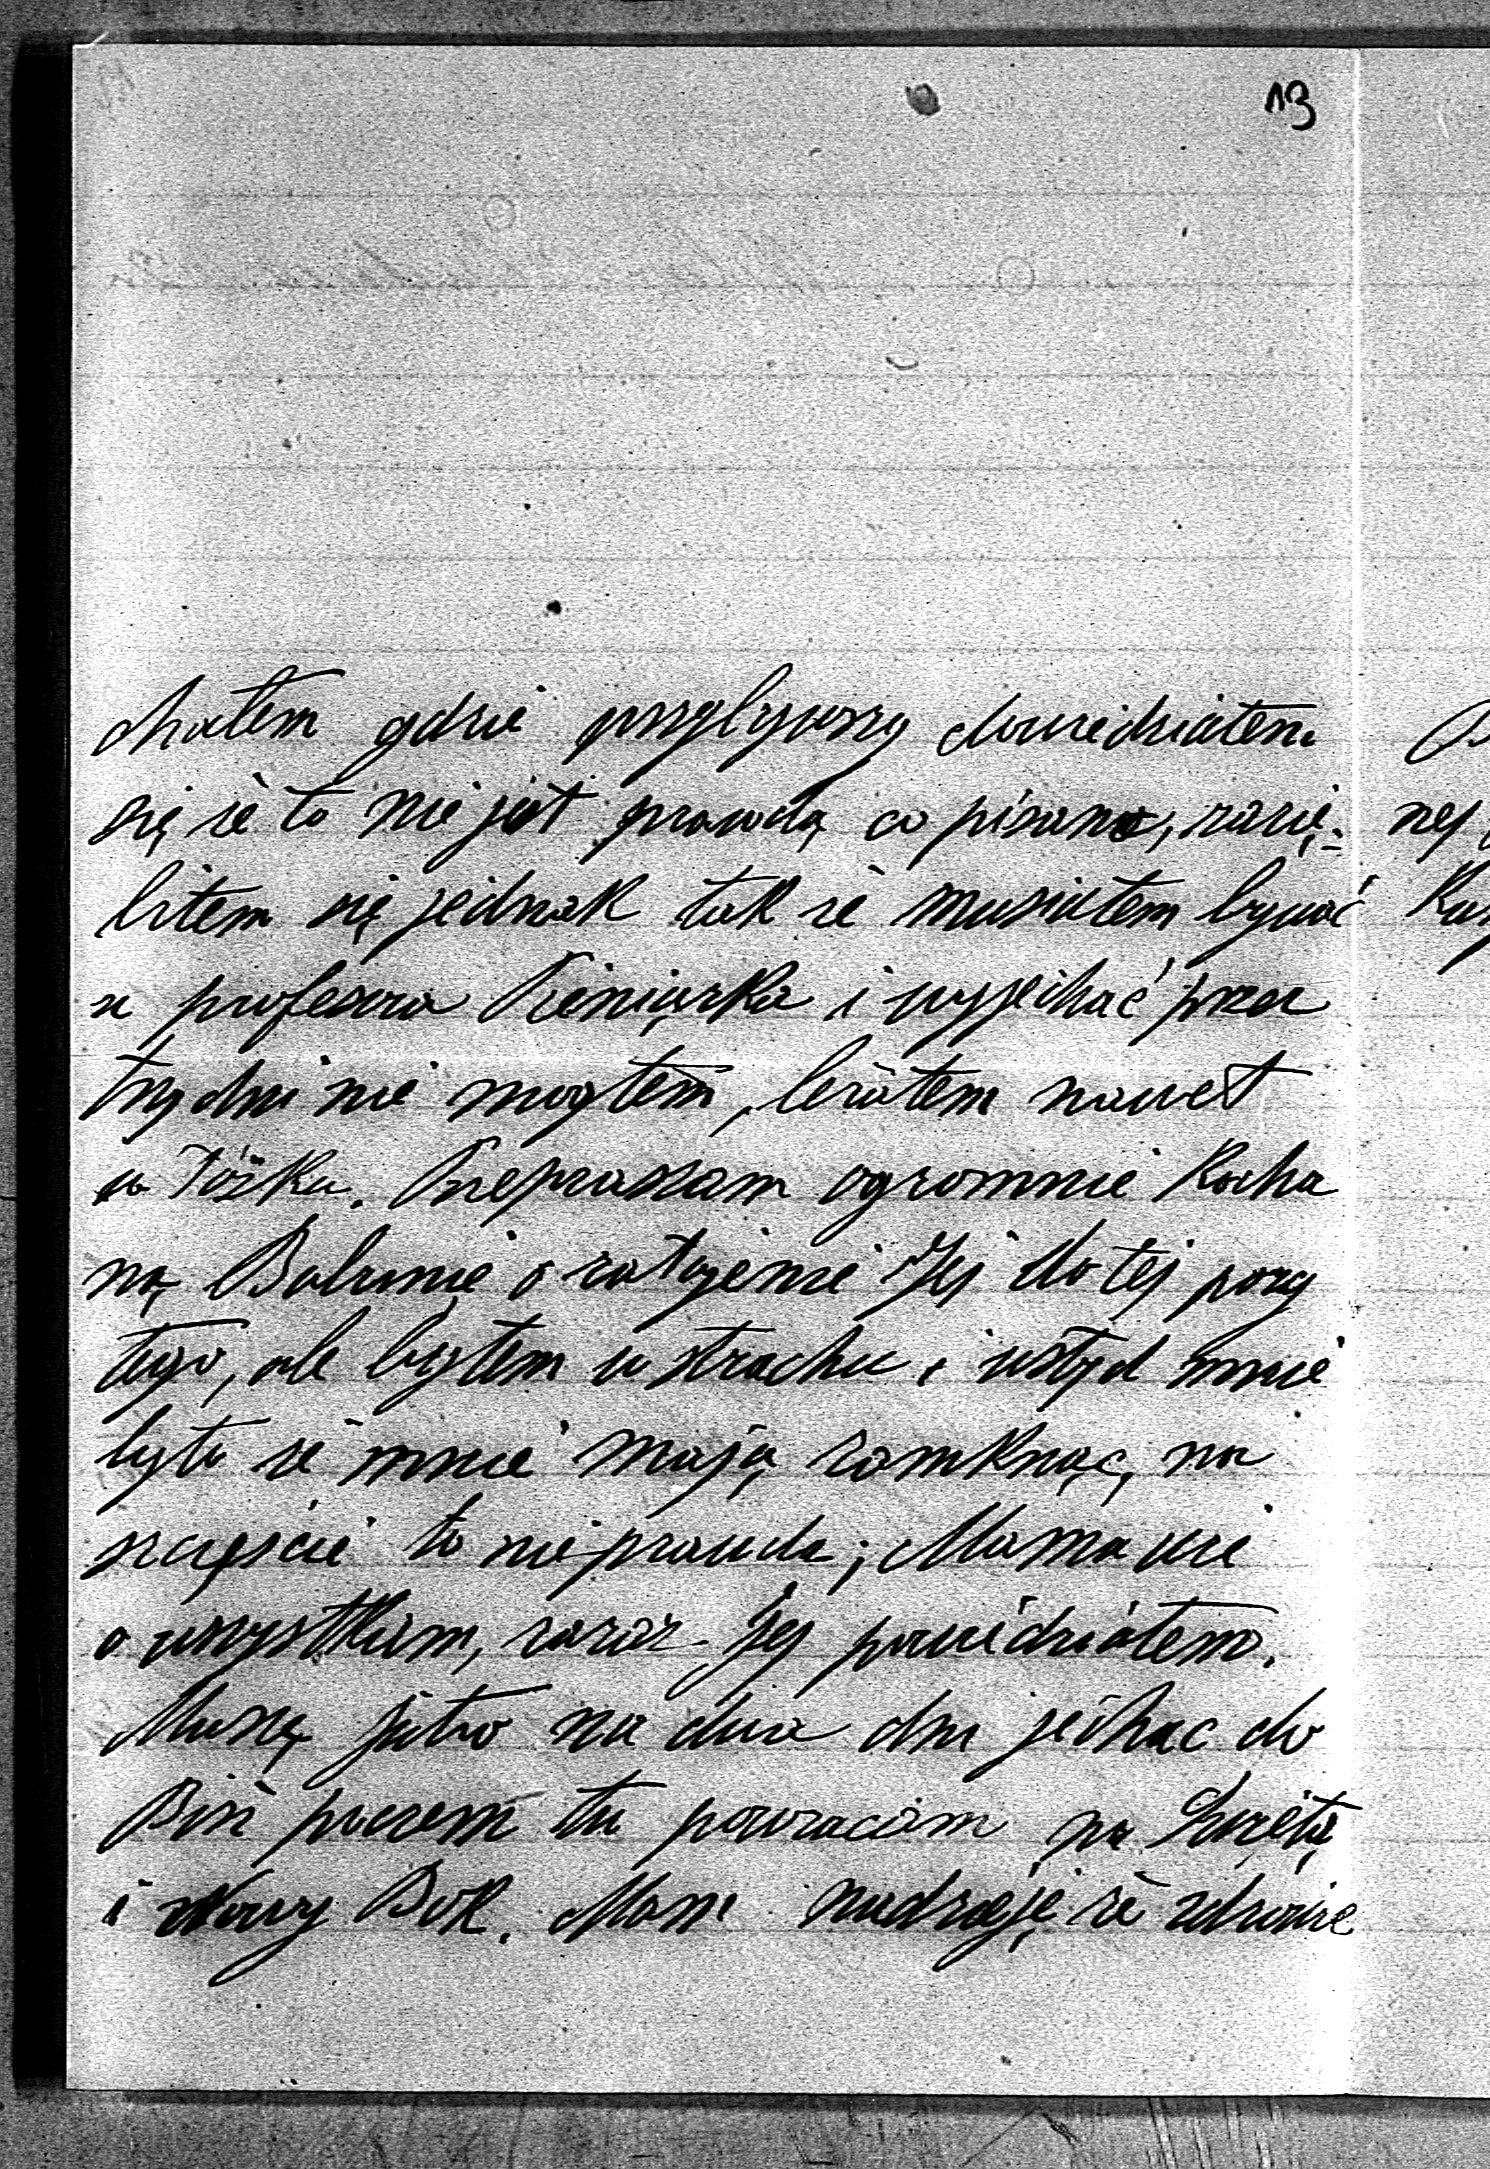 13
chałem gdzie przybywszy dowiedziałem
się że to nie jest prawdą co pisano, zazię-
biłem się jednak tak że musiałem bywać
u profesora Pieniążka i wyjechać przez
trzy dni nie mogłem, leżałem nawet
w łóżku. Przepraszam ogromnie Kocha
ną Babunię o zatajenie Jej do tej pory
tego, ale byłem w strachu i wstyd mnie
było że mnie mają zamknąć, na
szczęście to nieprawda; Mama wie
o wszystkiem, zaraz Jej powiedziałem.
Muszę jutro na dwa dni jechać do
poczem tu powracam na Święta
i Nowy Rok. Mam nadzieję że zdrowie